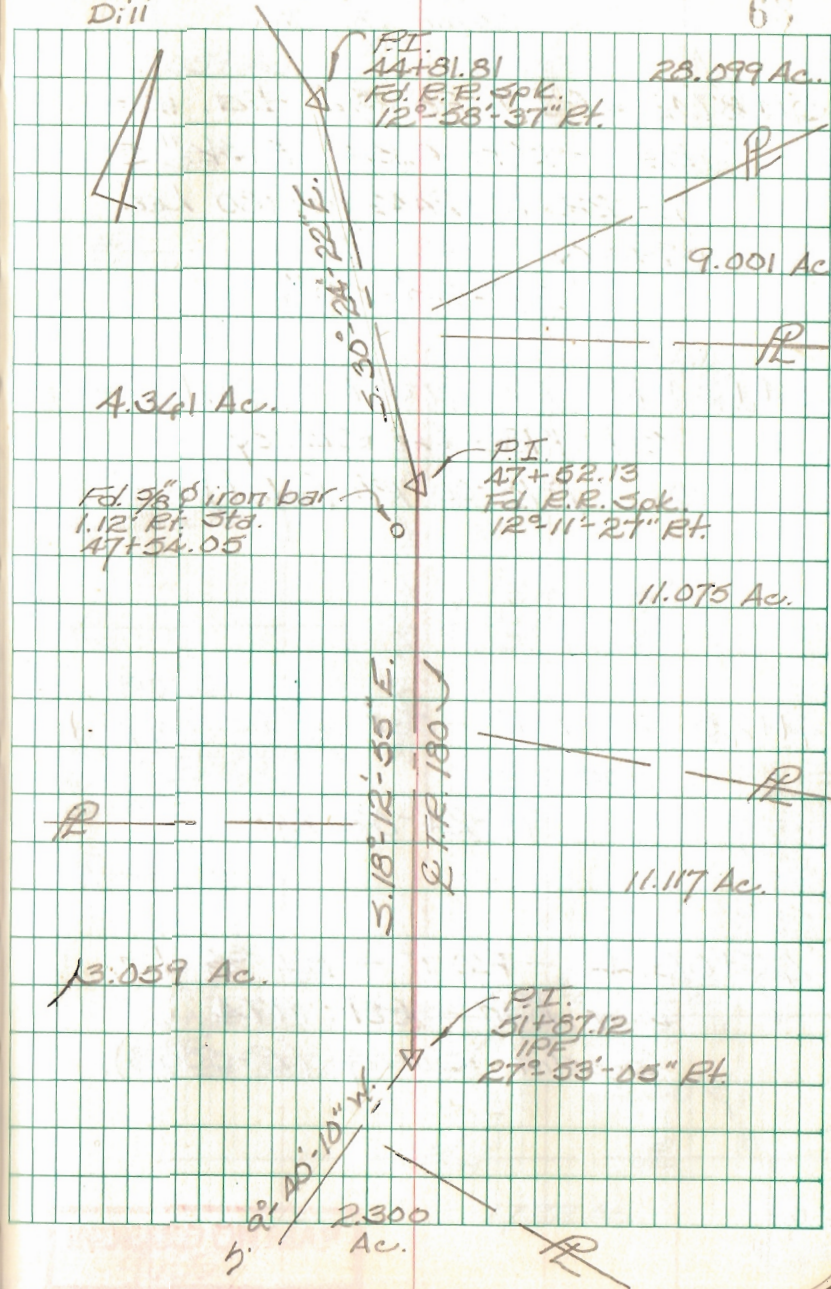 Dill
P.I.
44+81.81
Fd. R.R. Spk.
12°-58'-37" Rt.
28.099 Ac.
PL
S. 30°-24'-22" E.
9.001 Ac
PL
4.341 Ac.
P.I.
47+52.13
Fd. R.R. Spk.
12°-11'-27" Rt.
Fd. 5/8" ø iron bar
1.12' Rt. Sta.
47+54.05
11.075 Ac.
S. 18°-12'-55" E.
℄ T.R. 180
PL
PL
11.117 Ac.
13.059 Ac.
P.I.
51+87.12
IPF
27°-53'-05" Rt.
S. 9°-40'-10" W.
2.300
Ac.
PL